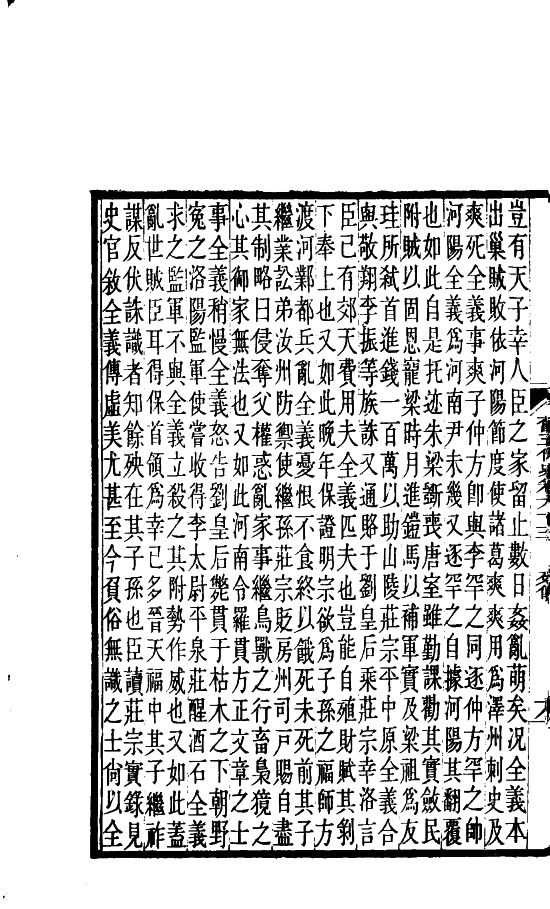 豈有天子幸人臣之家留止數日姦亂萌矣况全義本
出巢賊敗依河陽節度使諸葛爽爽用爲澤州刺史及
爽死全義事爽子仲方卽與李罕之同逐仲方罕之帥
河陽全義爲河南尹未幾又逐罕之自據河陽其翻覆
也如此自是托迹朱梁斵喪唐室雖勤課勸其實斂民
附賊以固恩寵梁時月進鎧馬以補軍實及梁祖爲友
珪所弑首進錢一百萬以助山陵莊宗平中原全義合
與敬翔李振等族誅又通賂于劉皇后乘莊宗幸洛言
臣已有郊天費用夫全義匹夫也豈能自殖財賦其剝
下奉上也又如此晚年保證明宗欲爲子孫之福師方
渡河鄴都兵亂全義憂恨不食終以餓死未死前其子
繼業訟弟汝州防禦使繼孫莊宗貶房州司戶賜自盡
其制略曰侵奪父權惑亂家事繼鳥獸之行畜梟獍之
心其御家無法也又如此河南令羅貫方正文章之士
事全義稍慢全義怒告劉皇后斃貫于枯木之下朝野
寃之洛陽監軍使嘗收得李太尉平泉莊醒酒石全義
求之監軍不與全義立殺之其附勢作威也又如此蓋
亂世賊臣耳得保首領爲幸已多晉天福中其子繼祚
謀反伏誅識者知餘殃在其子孫也臣讀莊宗實錄見
史官敘全義傳虛美尤甚至今負俗無識之士尙以全